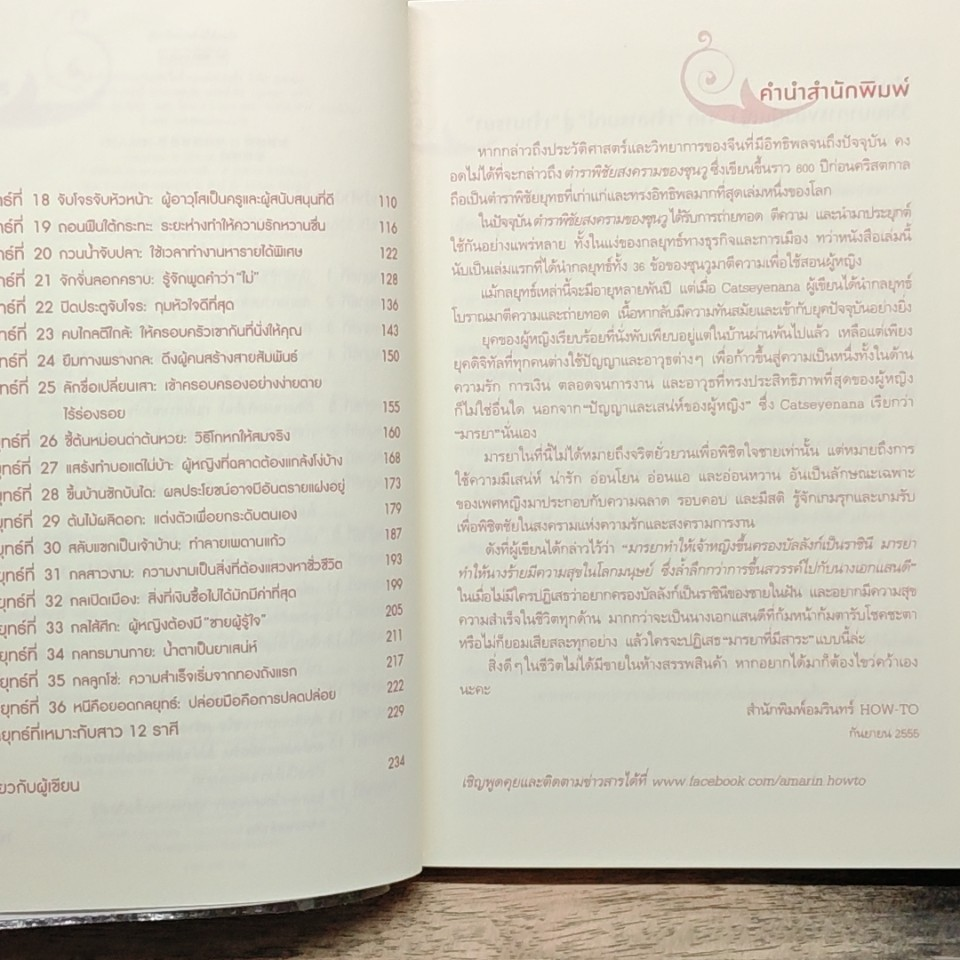 ทธ์ที่ 18 จับโจรจับหัวหน้า: ผู้อาวุโสเป็นครูและผู้สนับสนุนที่ดี 110
ทธ์ที่ 19 ถอนฟืนใต้กระทะ: ระยะห่างทำให้ความรักหวานชื่น 116
ทธ์ที่ 20 กวนน้ำจับปลา: ใช้เวลาทำงานหารายได้พิเศษ 122
ทธ์ที่ 21 จักจั่นลอกคราบ: รู้จักพูดคำว่า "ไม่" 128
ทธ์ที่ 22 ปิดประตูจับโจร: กุมหัวใจดีที่สุด 136
ทธ์ที่ 23 คบไกลตีใกล้: ให้ครอบครัวเขากันที่นั่งให้คุณ 143
ทธ์ที่ 24 ยืมทางพรางกล: ดึงผู้คนสร้างสายสัมพันธ์ 150
ทธ์ที่ 25 ลักขื่อเปลี่ยนเสา: เข้าครอบครองอย่างง่ายดาย
ไร้ร่องรอย 155
ยุทธ์ที่ 26 ชี้ต้นหม่อนด่าต้นหวย: วิธีโกหกให้สมจริง 160
ยุทธ์ที่ 27 แสร้งทำบอแต่ไม่บ้า: ผู้หญิงที่ฉลาดต้องแกล้งโง่บ้าง 168
ยุทธ์ที่ 28 ขึ้นบ้านชักบันได: ผลประโยชน์อาจมีอันตรายแฝงอยู่ 173
ยุทธ์ที่ 29 ต้นไม้ผลิดอก: แต่งตัวเพื่อยกระดับตนเอง 179
ยุทธ์ที่ 30 สลับแขกเป็นเจ้าบ้าน: ทำลายเพดานแก้ว 187
ยุทธ์ที่ 31 กลสาวงาม: ความงามเป็นสิ่งที่ต้องแสวงหาชั่วชีวิต 193
ยุทธ์ที่ 32 กลเปิดเมือง: สิ่งที่เงินซื้อไม่ได้มักมีค่าที่สุด 199
ยุทธ์ที่ 33 กลไส้ศึก: ผู้หญิงต้องมี "ชายผู้รู้ใจ" 205
ยุทธ์ที่ 34 กลทรมานกาย: น้ำตาเป็นยาเสน่ห์ 211
ยุทธ์ที่ 35 กลลูกโซ่: ความสำเร็จเริ่มจากทองถังแรก 217
ยุทธ์ที่ 36 หนีคือยอดกลยุทธ์: ปล่อยมือคือการปลดปล่อย 222
ยุทธ์ที่เหมาะกับสาว 12 ราศี 229
ยวกับผู้เขียน 234
คำนำสำนักพิมพ์
หากกล่าวถึงประวัติศาสตร์และวิทยาการของจีนที่มีอิทธิพลจนถึงปัจจุบัน คง
อดไม่ได้ที่จะกล่าวถึง ตำราพิชัยสงครามของซุนวู ซึ่งเขียนขึ้นราว 600 ปีก่อนคริสตกาล
ถือเป็นตำราพิชัยยุทธที่เก่าแก่และทรงอิทธิพลมากที่สุดเล่มหนึ่งของโลก
ในปัจจุบัน ตำราพิชัยสงครามของซุนวู ได้รับการถ่ายทอด ตีความ และนำมาประยุกต์
ใช้กันอย่างแพร่หลาย ทั้งในแง่ของกลยุทธ์ทางธุรกิจและการเมือง ทว่าหนังสือเล่มนี้
นับเป็นเล่มแรกที่ได้นำกลยุทธ์ทั้ง 36 ข้อของซุนวูมาตีความเพื่อใช้สอนผู้หญิง
แม้กลยุทธ์เหล่านี้จะมีอายุหลายพันปี แต่เมื่อ Catseyenana ผู้เขียนได้นำกลยุทธ์
โบราณมาตีความและถ่ายทอด เนื้อหากลับมีความทันสมัยและเข้ากับยุคปัจจุบันอย่างยิ่ง
ยุคของผู้หญิงเรียบร้อยที่นั่งพับเพียบอยู่แต่ในบ้านผ่านพ้นไปแล้ว เหลือแต่เพียง
ยุคดิจิทัลที่ทุกคนต่างใช้ปัญญาและอาวุธต่างๆ เพื่อก้าวขึ้นสู่ความเป็นหนึ่งทั้งในด้าน
ความรัก การเงิน ตลอดจนการงาน และอาวุธที่ทรงประสิทธิภาพที่สุดของผู้หญิง
ก็ไม่ใช่อื่นใด นอกจาก "ปัญญาและเสน่ห์ของผู้หญิง" ซึ่ง Catseyenana เรียกว่า
"มารยา" นั่นเอง
มารยาในที่นี้ไม่ได้หมายถึงจริตยั่วยวนเพื่อพิชิตใจชายเท่านั้น แต่หมายถึงการ
ใช้ความมีเสน่ห์ น่ารัก อ่อนโยน อ่อนแอ และอ่อนหวาน อันเป็นลักษณะเฉพาะ
ของเพศหญิงมาประกอบกับความฉลาด รอบคอบ และมีสติ รู้จักเกมรุกและเกมรับ
เพื่อพิชิตชัยในสงครามแห่งความรักและสงครามการงาน
ดังที่ผู้เขียนได้กล่าวไว้ว่า "มารยาทำให้เจ้าหญิงขึ้นครองบัลลังก์เป็นราชินี มารยา
ทำให้นางร้ายมีความสุขในโลกมนุษย์ ซึ่งล้ำลึกกว่าการขึ้นสวรรค์ไปกับนางเอกแสนดี"
ในเมื่อไม่มีใครปฏิเสธว่าอยากครองบัลลังก์เป็นราชินีของชายในฝัน และอยากมีความสุข
ความสำเร็จในชีวิตทุกด้าน มากกว่าจะเป็นนางเอกแสนดีที่ก้มหน้าก้มตารับโชคชะตา
หรือไม่ก็ยอมเสียสละทุกอย่าง แล้วใครจะปฏิเสธ "มารยาที่มีสาระ" แบบนี้ล่ะ
สิ่งดีๆ ในชีวิตไม่ได้มีขายในห้างสรรพสินค้า หากอยากได้มาก็ต้องไขว่คว้าเอง
นะคะ
สำนักพิมพ์อมรินทร์ HOW-TO
กันยายน 2555
เชิญพูดคุยและติดตามข่าวสารได้ที่ www.facebook.com/amarin.howto